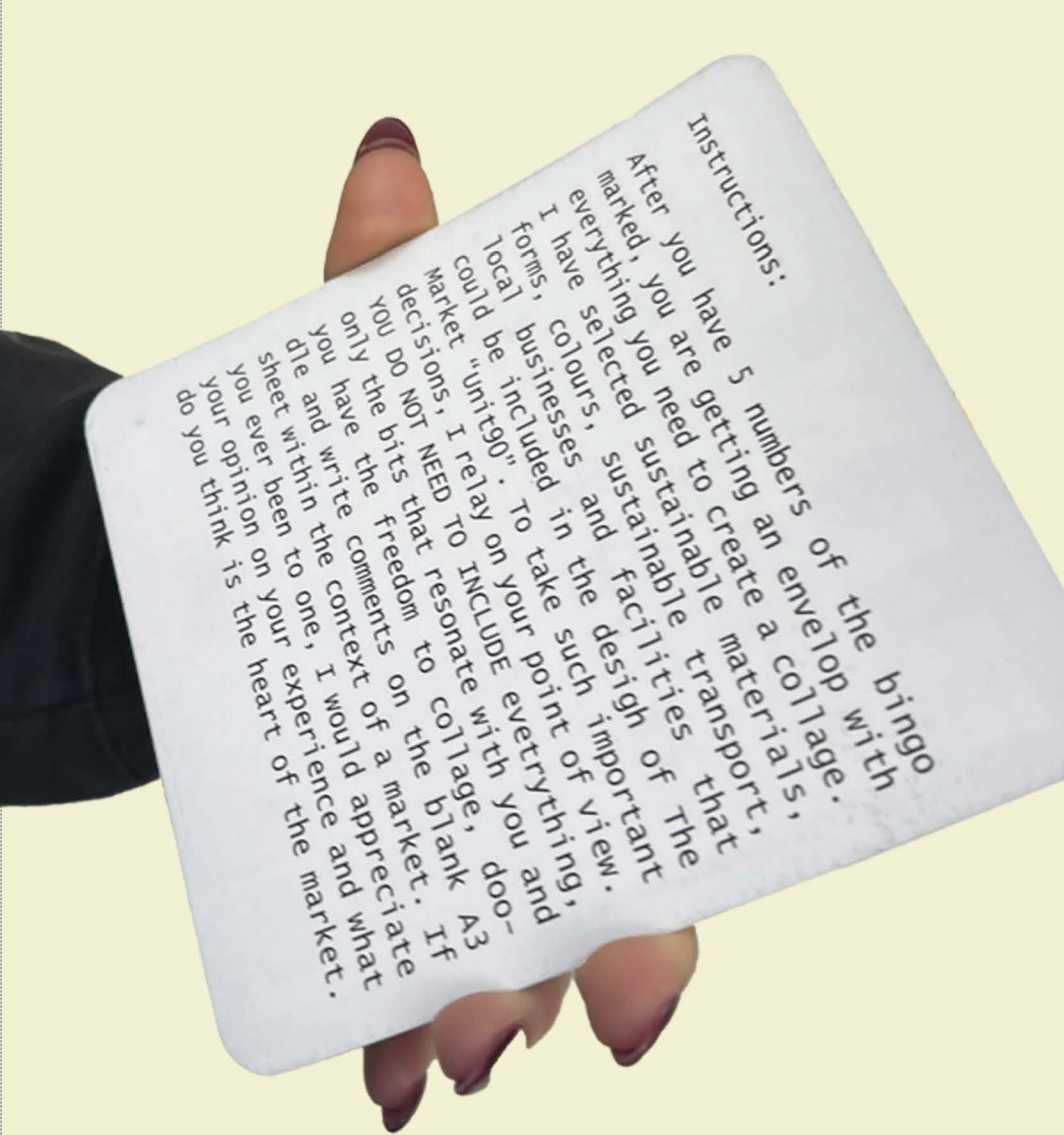 Instructions:
After you have 5 numbers of the bingo
marked, you are getting an envelop with
everything you need to create a collage.
I have selected sustainable materials,
forms, colours, sustainable transport,
local businesses and facilities that
could be included in the design of The
Market “Unit90”. To take such important
decisions, I relay on your point of view.
YOU DO NOT NEED TO INCLUDE evetrything,
only the bits that resonate with you and
you have the freedom to collage, doo-
dle and write comments on the blank A3
sheet within the context of a market. If
you ever been to one, I would appreciate
your opinion on your experience and what
do you think is the heart of the market.